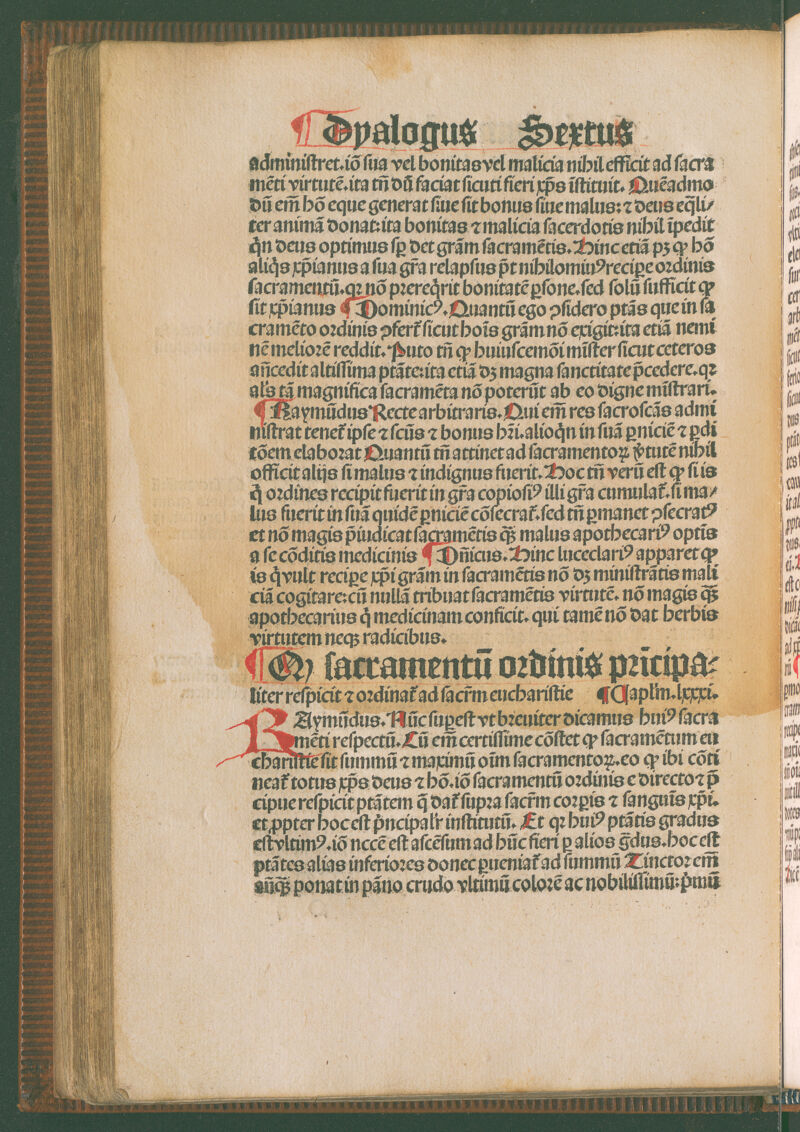 ¶ Dyalogus Sextus
adminiſtret.iõ ſua vel bonitas vel malicia nihil efficit ad ſacra
mẽti virtutẽ.ita tñ dũ faciat ſicuti fieri xp̃s ĩſtituit. Quẽadmo
dũ em̃ hõ eque generat ſiue ſit bonus ſiue malus: ⁊ deus eq̃li/
ter animã donat: ita bonitas ⁊ malicia ſacerdotis nihil ĩpedit
qͥn deus optimus ſꝑ det grãm ſacramẽtis. Hinc etiã pꝫ ꝙ hõ
aliqͥs xp̃ianus a ſua gr̃a relapſus p̃t nihilominꝰ recipe ordinis
ſacramentũ.qꝛ nõ prereqͥrit bonitatẽ ꝑſone.ſed ſolũ ſufficit ꝙ
ſit xp̃ianus ¶ Dominicꝰ. Quantũ ego ↄſidero ptãs que in ſa
cramẽto ordinis ↄfert̃ ſicut hoĩs grãm nõ exigit: ita etiã nemi
nẽ meliorẽ reddit. Puto tñ ꝙ huiuſcemõi mĩſter ſicut ceteros
añcedit altiſſima ptãte: ita etiã dꝫ magna ſanctitate p̃cedere.qꝛ
als tã magnifica ſacramẽta nõ poterũt ab eo digne mĩſtrari.
¶ Raymũdus Recte arbitraris. Qui em̃ res ſacroſcãs admi
niſtrat tenet̃ ipſe ⁊ ſcũs ⁊ bonus hr̃i.alioqͥn in ſuã ꝑniciẽ ⁊ ꝑdi
tõem elaborat Quantũ tñ attinet ad ſacramentoꝝ v̓tutẽ nihil
officit alijs ſi malus ⁊ indignus fuerit. Hoc tñ verũ eſt ꝙ ſi is
qͥ ordines recipit fuerit in gr̃a copioſiꝰ illi gr̃a cumulat̃.ſi ma/
lus fuerit in ſuã quidẽ ꝑniciẽ cõſecrat̃.ſed tñ ꝑmanet ↄſecratꝰ
et nõ magis p̃iudicat ſacramẽtis qͣꝫ malus apothecariꝰ optĩs
a ſe cõditis medicinis ¶ Dñicus. Hinc luce clariꝰ apparet ꝙ
is qͥ vult recipe xp̃i grãm in ſacramẽtis nõ dꝫ miniſtrãtis mali
ciã cogitare: cũ nullã tribuat ſacramẽtis virtutẽ. nõ magis qͣꝫ
apothecarius qͥ medicinam conficit. qui tamẽ nõ dat herbis
virtutem neqꝫ radicibus.
¶ Ꝙ ſacramentũ ordinis prĩcipa⸗
liter reſpicit ⁊ ordinat̃ ad ſacr̃m euchariſtie ¶ Caplm̃.lxxxi.
RAymũdus. Nũc ſupeſt vt breuiter dicamus huiꝰ ſacra
mẽti reſpectũ. Cũ em̃ certiſſime cõſtet ꝙ ſacramẽtum eu
chariſtie ſit ſummũ ⁊ maximũ oĩm ſacramentoꝝ.eo ꝙ ibi cõti
neat̃ totus xp̃s deus ⁊ hõ.iõ ſacramentũ ordinis e directo ⁊ p̃
cipue reſpicit ptãtem q̃ dat̃ ſupra ſacr̃m corꝑis ⁊ ſanguĩs xp̃i.
et ꝓpter hoc eſt pͥncipalr̃ inſtitutũ. Et qꝛ huiꝰ ptãtis gradus
eſt vltimꝰ.iõ nccẽ eſt aſcẽſum ad hũc fieri ꝑ alios g̃dus.hoc eſt
ptãtes alias inferiores donec ꝑueniat̃ ad ſummũ Tinctor em̃
añqͣꝫ ponat in pãno crudo vltimũ colorẽ ac nobiliſſimũ: pͥmũ